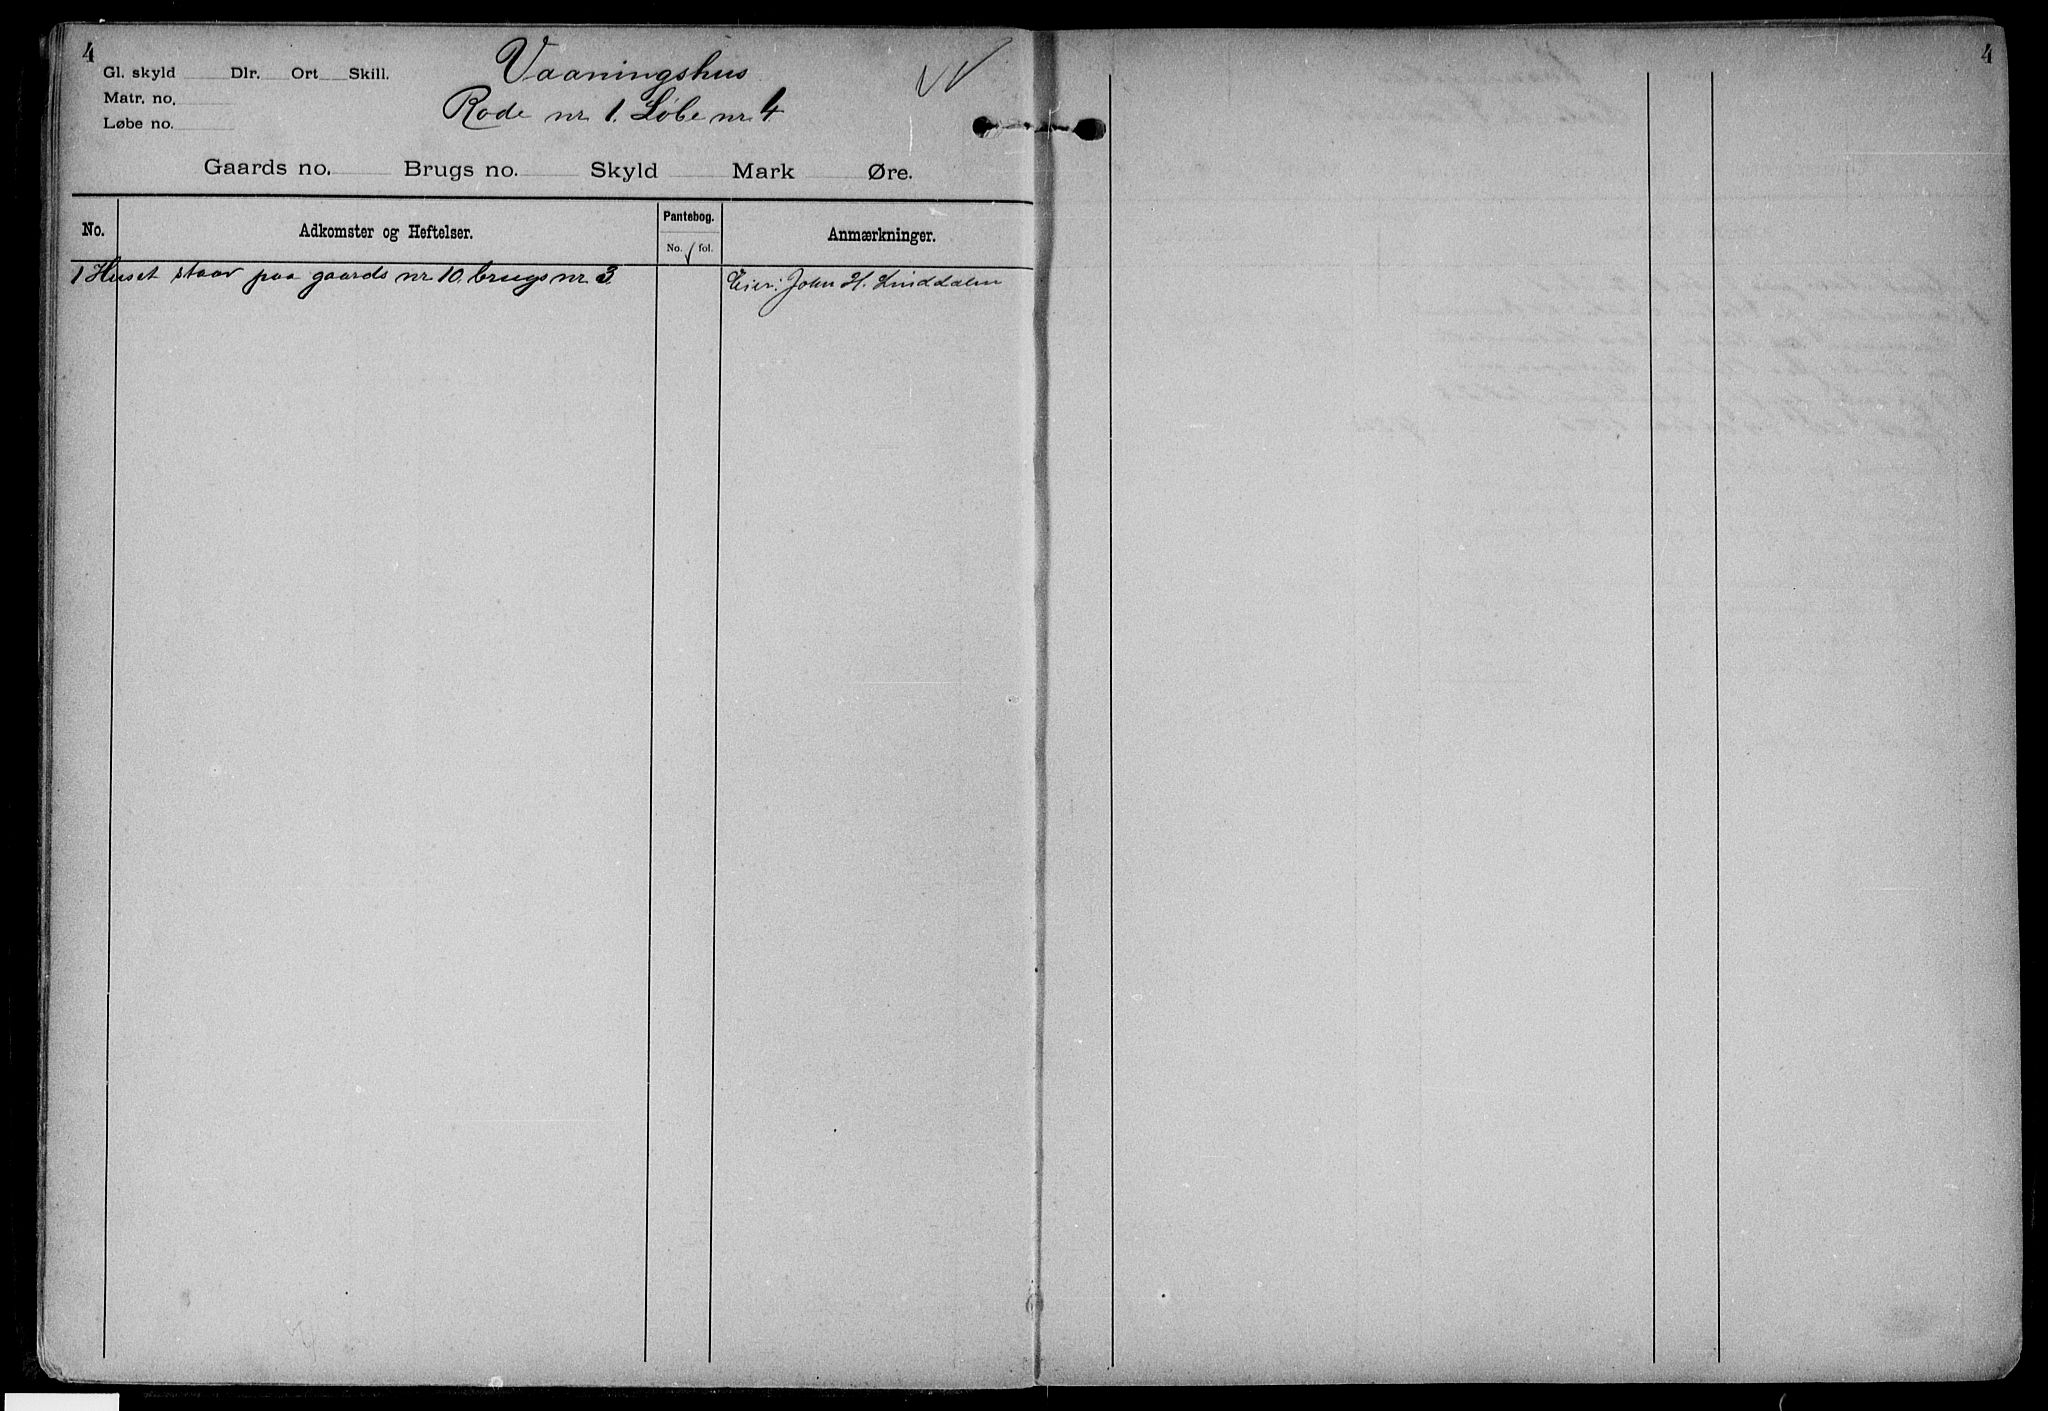 4
Gl. skyld Dlr. Ort Skill.
Matr. no.
Løbe no.
Vaaningshus
Rode nr 1. Løbe nr 4
Gaards no. Brugs no. Skyld Mark Øre.
No. Adkomster og Heftelser. Pantebog. No. / fol. Anmærkninger.
1 Huset staar paa gaards nr 10, brugs nr 3. Eier: John H. Linddalen
4